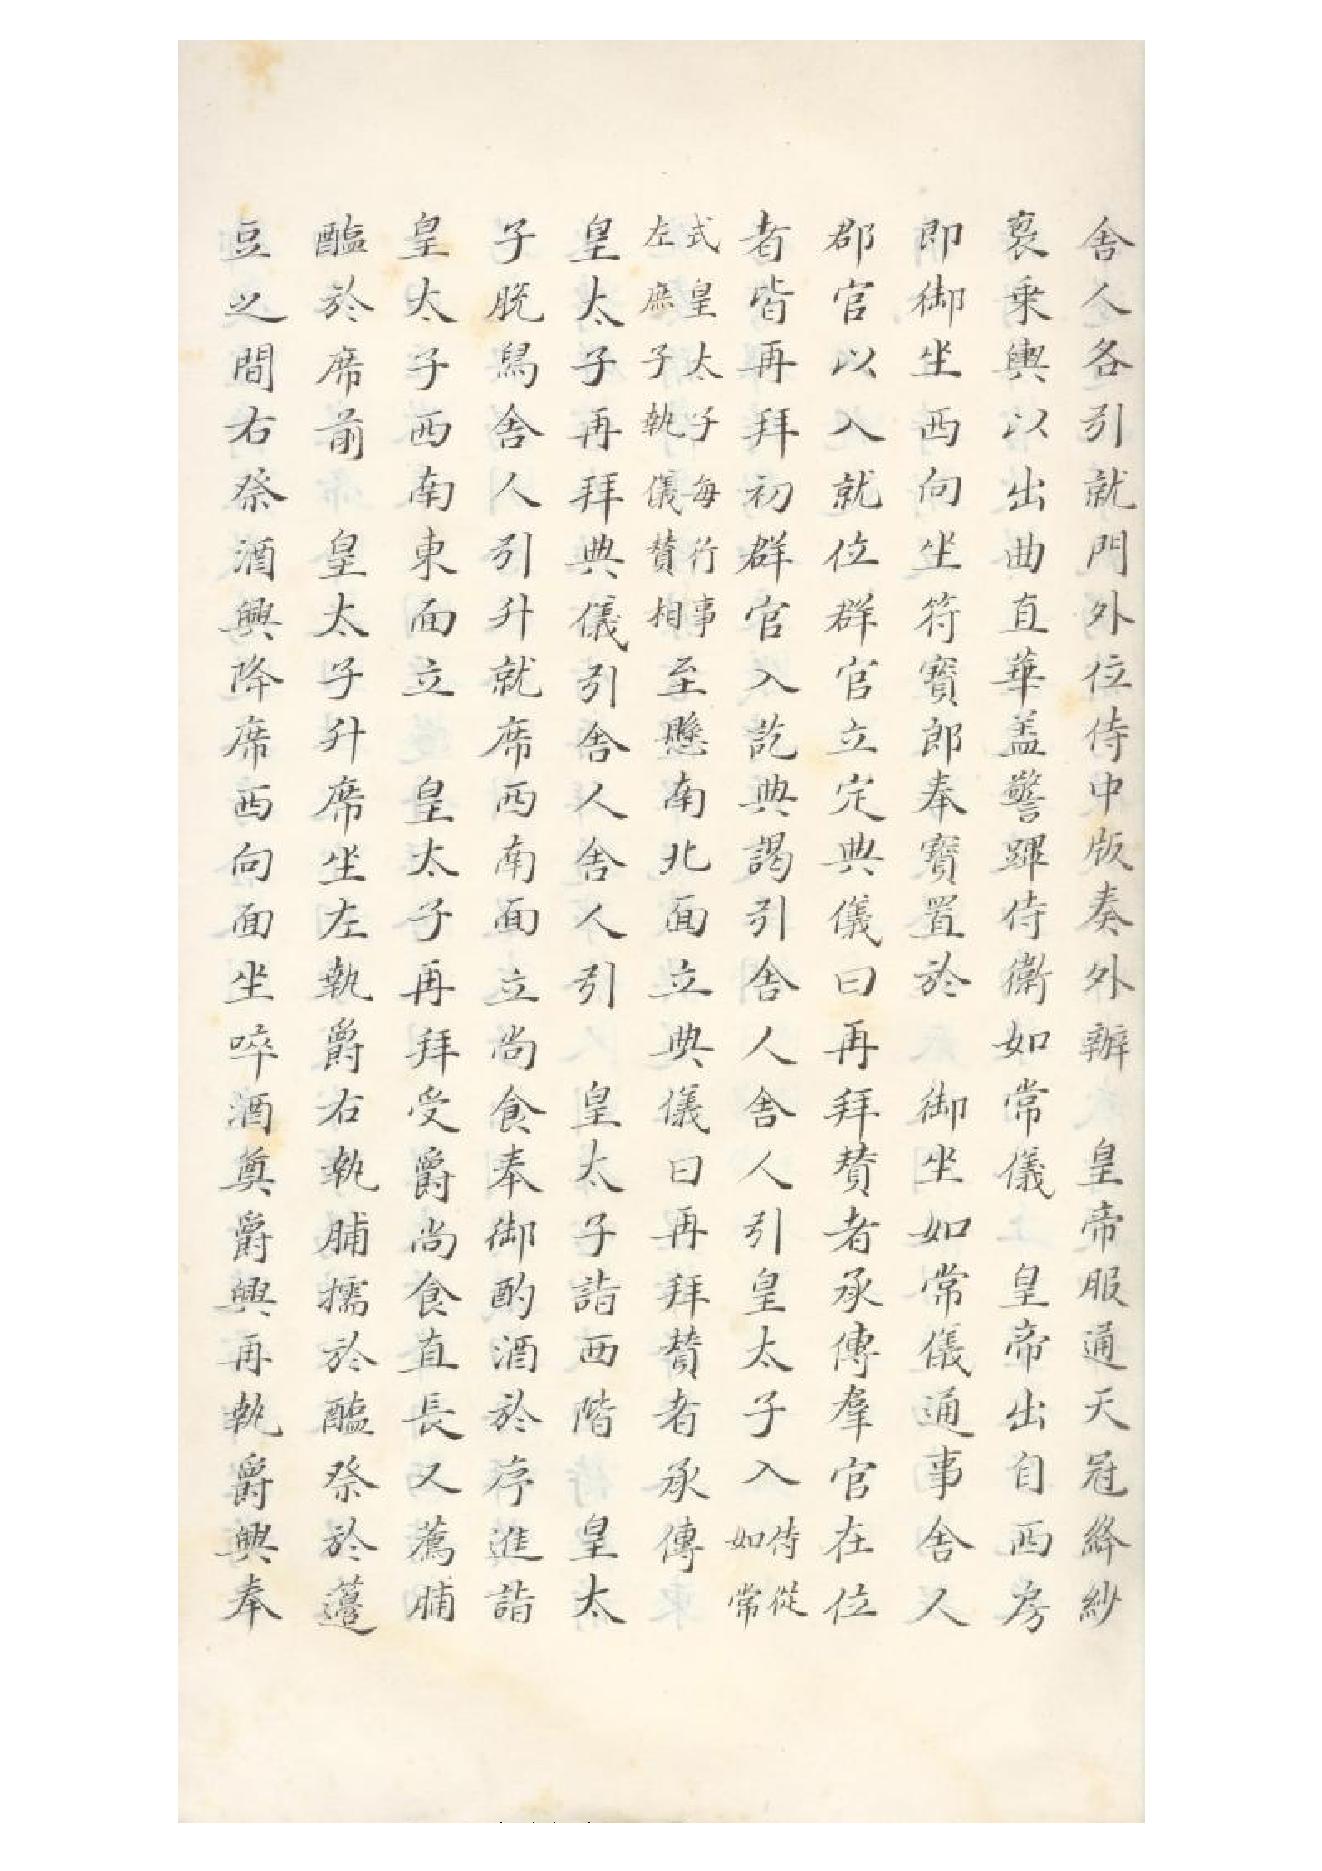 舍人各引就門外位侍中版奏外辦　皇帝服通天冠絳紗
袞乘輿以出曲直華盖警蹕侍衛如常儀　皇帝出自西房
即御坐西向坐符寶郎奉寶置於　御坐如常儀通事舍人
郡官以入就位群官立定典儀曰再拜賛者承傳羣官在位
者皆再拜初群官入訖典謁引舍人舍人引皇太子入侍從如常
式皇太子每行事左庶子執儀賛相至懸南北面立典儀曰再拜賛者承傳
皇太子再拜典儀引舍人舍人引　皇太子詣西階　皇太
子脫舄舍人引升就席西南面立尚食奉御酌酒於序進詣
皇太子西南東面立　皇太子再拜受爵尚食直長又薦脯
醢於席前　皇太子升席坐左執爵右執脯擩於醢祭於籩
豆之間右祭酒興降席西向面坐啐酒奠爵興再執爵興奉